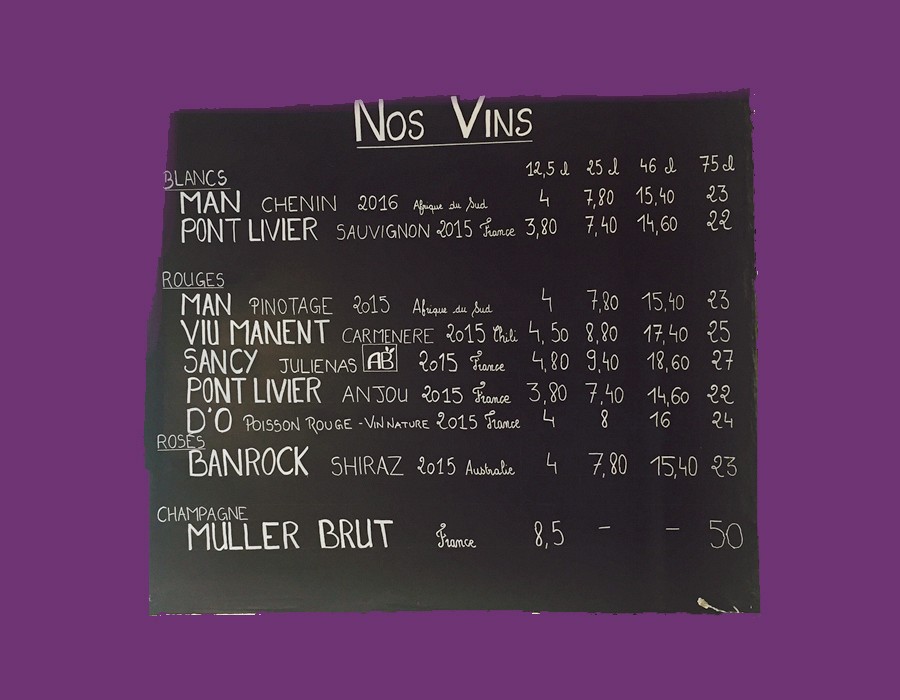 Nos Vins
12,5 cl 25 cl 46 cl 75 cl
BLANCS
MAN CHENIN 2016 Afrique du Sud 4 7,80 15,40 23
PONT LIVIER SAUVIGNON 2015 France 3,80 7,40 14,60 22
ROUGES
MAN PINOTAGE 2015 Afrique du Sud 4 7,80 15,40 23
VIU MANENT CARMENERE 2015 Chili 4,50 8,80 17,40 25
SANCY JULIENAS AB 2015 France 4,80 9,40 18,60 27
PONT LIVIER ANJOU 2015 France 3,80 7,40 14,60 22
D'O POISSON ROUGE - VIN NATURE 2015 France 4 8 16 24
ROSÉS
BANROCK SHIRAZ 2015 Australie 4 7,80 15,40 23
CHAMPAGNE
MULLER BRUT France 8,5 - - 50